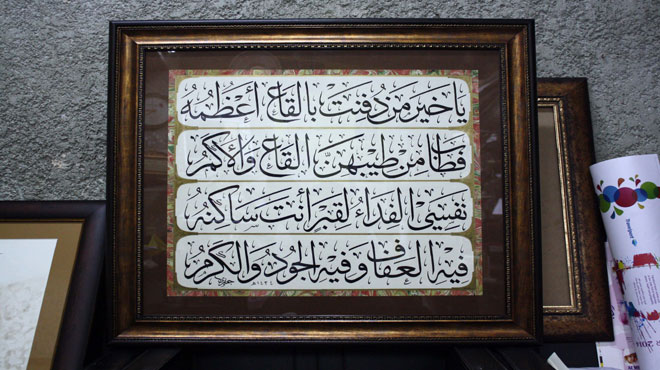 يا خير من دفنت بالقاع أعظمه
فطاب من طيبهن القاع والأكم
نفسي الفداء لقبر أنت ساكنه
فيه العفاف وفيه الجود والكرم
١٤٣٤هـ